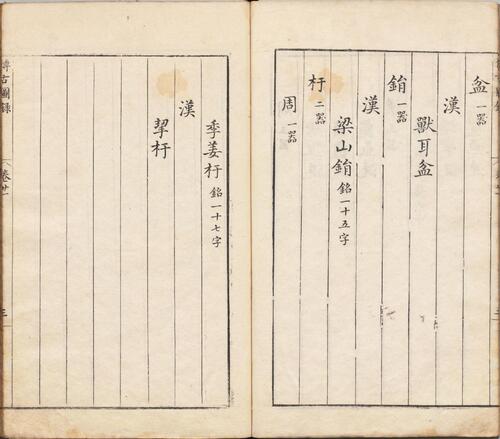 盆一器
漢
獸耳盆
鋗一器
漢
梁山鋗銘一十五字
杅二器
周一器
季姜杅銘一十七字
漢
挈杅
博古圖錄
卷廿一
三